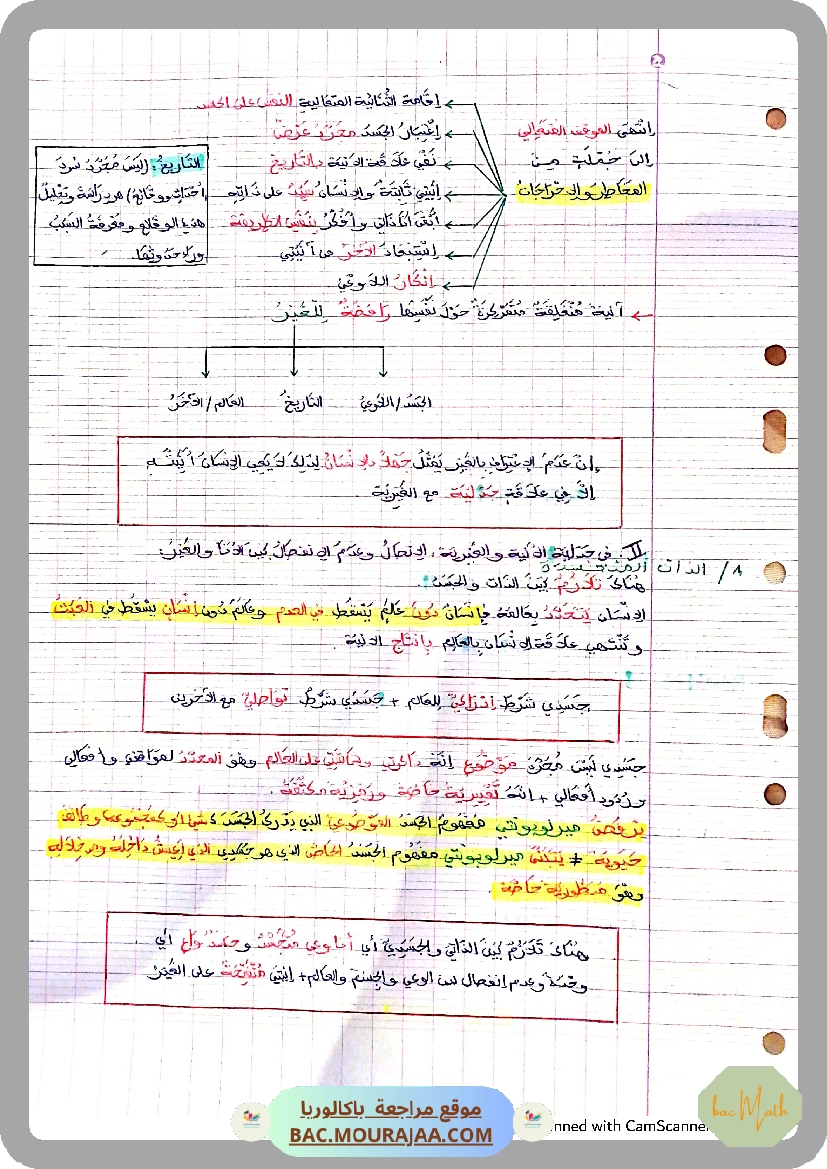 إقامة الثنائية المتعالية النفس على الجسد
إنتهى الموقف الفلسفي
إعتبار الجسد مجرد عرض
إلى جملة من
نفي علاقة الإنية بالتاريخ
المخاطر والإحراجات
إنيتي ثابتة والإنسان على ذاته
أبقى أنا ذاتي وأفكر بنفس الطريقة
إستبعاد الآخر من أنيتي
إنكار اللاوعي
التاريخ: ليس مجرد سرد
أحداث ووقائع/ هو دراسة وتحليل
هذه الوقائع ومعرفة السبب
وراء حدوثها.
← آنية منغلقة متمركزة حول نفسها رافضة للغير
الجسد/اللاوعي
التاريخ
العالم/الآخر
إن عدم الإعتراف بالغير يمثل جهلا بالإنسان لذلك لا يعي الإنسان أنيته
إلا في علاقة جدلية مع الغيرية.
II. في جدلية الأنية والغيرية، الإتصال وعدم الإنفصال بين الأنا والغير:
1/ الذات المتجسدة
هناك تلازم بين الذات والجسد.
الإنسان يتحدد بعالمه فإنسان دون عالم يسقط في العدم وعالم دون إنسان يسقط في العبث
وتنتهي علاقة الإنسان بالعالم بإنتاج الانية.
جسدي شرط إنتمائي للعالم + جسدي شرط تواصلي مع الآخرين
جسدي ليس مجرد موضوع إنه على العالم وهو المحدد لمواقفي وأفعالي
وردود أفعالي + إنه تعبيرية خاصة ورمزية مكثفة.
يرفض ميرلوبونتي مفهوم الجسد الموضوعي الذي يدرك الجسد وظائف
حيوية ≠ يتبنى ميرلوبونتي مفهوم الجسد الخاص الذي هو جسدي الذي أعيش داخله ومن خلاله
وهو منظورية خاصة.
هناك تلازم بين الذاتي والجسدي أي أنا وعي متجسد وجسد واع أي
وحدة وعدم إنفصال بين الوعي والجسم والعالم + إنيتي منفتحة على الغير
موقع مراجعة باكالوريا
BAC.MOURAJAA.COM
nned with CamScanner
bac Math